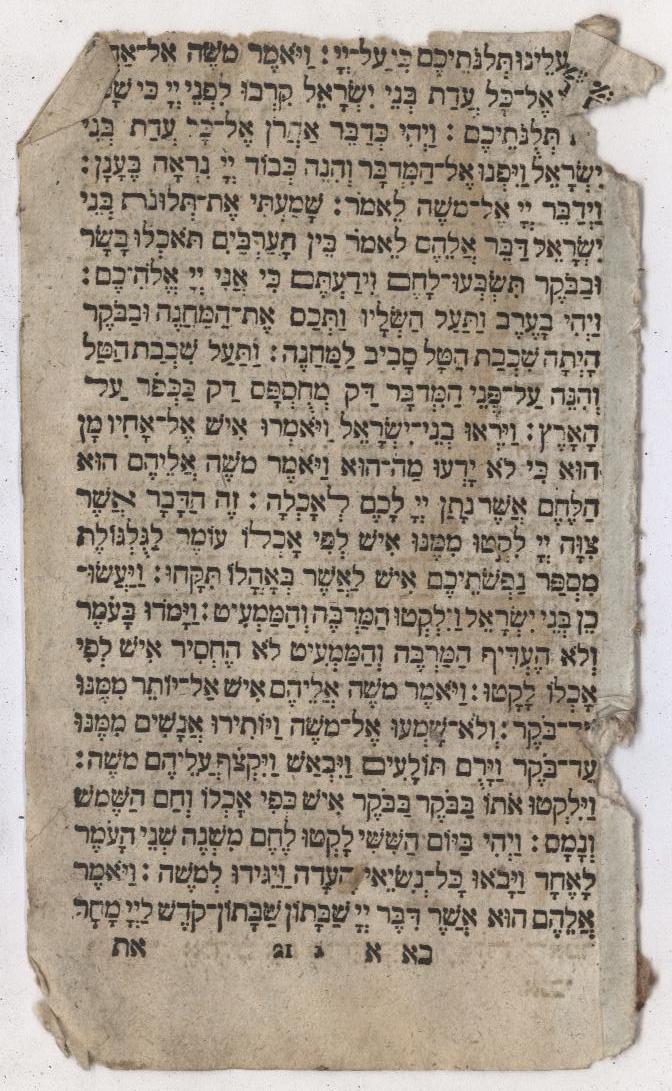 עָלֵינוּ תְּלֻנֹּתֵיכֶם כִּי עַל־יְיָ׃ וַיֹּאמֶר מֹשֶׁה אֶל־
אֶל־כָּל עֲדַת בְּנֵי יִשְׂרָאֵל קִרְבוּ לִפְנֵי יְיָ כִּי
תְּלֻנֹּתֵיכֶם׃ וַיְהִי כְּדַבֵּר אַהֲרֹן אֶל־כָּל עֲדַת בְּנֵי
יִשְׂרָאֵל וַיִּפְנוּ אֶל־הַמִּדְבָּר וְהִנֵּה כְּבוֹד יְיָ נִרְאָה בֶּעָנָן׃
וַיְדַבֵּר יְיָ אֶל־מֹשֶׁה לֵּאמֹר׃ שָׁמַעְתִּי אֶת־תְּלוּנֹּת בְּנֵי
יִשְׂרָאֵל דַּבֵּר אֲלֵהֶם לֵאמֹר בֵּין הָעַרְבַּיִם תֹּאכְלוּ בָשָׂר
וּבַבֹּקֶר תִּשְׂבְּעוּ־לָחֶם וִידַעְתֶּם כִּי אֲנִי יְיָ אֱלֹהֵיכֶם׃
וַיְהִי בָעֶרֶב וַתַּעַל הַשְּׂלָיו וַתְּכַס אֶת־הַמַּחֲנֶה וּבַבֹּקֶר
הָיְתָה שִׁכְבַת הַטָּל סָבִיב לַמַּחֲנֶה׃ וַתַּעַל שִׁכְבַת הַטָּל
וְהִנֵּה עַל־פְּנֵי הַמִּדְבָּר דַּק מְחֻסְפָּס דַּק כַּכְּפֹר עַל־
הָאָרֶץ׃ וַיִּרְאוּ בְנֵי־יִשְׂרָאֵל וַיֹּאמְרוּ אִישׁ אֶל־אָחִיו מָן
הוּא כִּי לֹא יָדְעוּ מַה־הוּא וַיֹּאמֶר מֹשֶׁה אֲלֵיהֶם הוּא
הַלֶּחֶם אֲשֶׁר נָתַן יְיָ לָכֶם לְאָכְלָה׃ זֶה הַדָּבָר אֲשֶׁר
צִוָּה יְיָ לִקְטוּ מִמֶּנּוּ אִישׁ לְפִי אָכְלוֹ עוֹמֶר לַגֻּלְגּוֹלֶת
מִסְפַּר נַפְשֹׁתֵיכֶם אִישׁ לַאֲשֶׁר בְּאָהֳלוֹ תִּקָּחוּ׃ וַיַּעֲשׂוּ־
כֵן בְּנֵי יִשְׂרָאֵל וַיִּלְקְטוּ הַמַּרְבֶּה וְהַמַּמְעִיט׃ וַיָּמֹדּוּ בָעֹמֶר
וְלֹא הֶעְדִּיף הַמַּרְבֶּה וְהַמַּמְעִיט לֹא הֶחְסִיר אִישׁ לְפִי
אָכְלוֹ לָקָטוּ׃ וַיֹּאמֶר מֹשֶׁה אֲלֵיהֶם אִישׁ אַל־יוֹתֵר מִמֶּנּוּ
עַד־בֹּקֶר׃ וְלֹא־שָׁמְעוּ אֶל־מֹשֶׁה וַיּוֹתִירוּ אֲנָשִׁים מִמֶּנּוּ
עַד־בֹּקֶר וַיָּרֻם תּוֹלָעִים וַיִּבְאַשׁ וַיִּקְצֹף עֲלֵיהֶם מֹשֶׁה׃
וַיִּלְקְטוּ אֹתוֹ בַּבֹּקֶר בַּבֹּקֶר אִישׁ כְּפִי אָכְלוֹ וְחַם הַשֶּׁמֶשׁ
וְנָמָס׃ וַיְהִי בַּיּוֹם הַשִּׁשִּׁי לָקְטוּ לֶחֶם מִשְׁנֶה שְׁנֵי הָעֹמֶר
לָאֶחָד וַיָּבֹאוּ כָּל־נְשִׂיאֵי הָעֵדָה וַיַּגִּידוּ לְמֹשֶׁה׃ וַיֹּאמֶר
אֲלֵהֶם הוּא אֲשֶׁר דִּבֶּר יְיָ שַׁבָּתוֹן שַׁבָּתוֹן־קֹדֶשׁ לַיְיָ מָחָר
כא א ג את